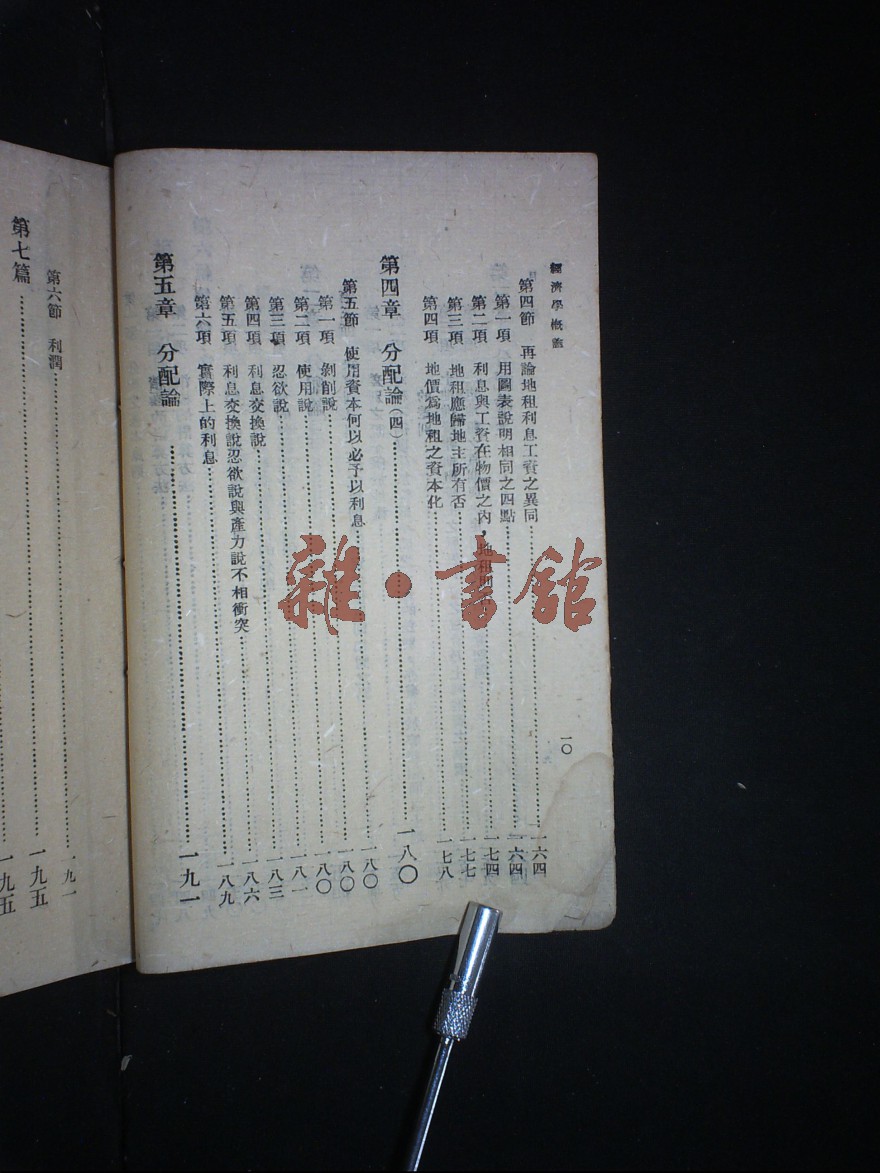 經濟學概論
一〇
第四節 再論地租利息工資之異同……一六四
第一項 用圖表說明相同之四點……一六四
第二項 利息與工資在物價之內，地租則……一七四
第三項 地租應歸地主所有否……一七七
第四項 地價爲地租之資本化……一七八
第四章 分配論(四)……一八〇
第五節 使用資本何以必予以利息……一八〇
第一項 剝削說……一八〇
第二項 使用說……一八〇
第三項 忍欲說……一八一
第四項 利息交換說……一八三
第五項 利息交換說忍欲說與產力說不相衝突……一八六
第六項 實際上的利息……一八九
第五章 分配論……一九一
第六節 利潤……一九一
第七篇……一九五
一九五
雜·書館